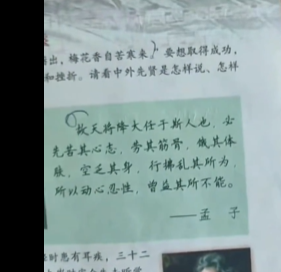 出，梅花香自苦寒来。要想取得成功，
和挫折。请看中外先贤是怎样说、怎样
故天将降大任于斯人也，必
先苦其心志，劳其筋骨，饿其体
肤，空乏其身，行拂乱其所为，
所以动心忍性，曾益其所不能。
——孟 子
时患有耳疾，三十二